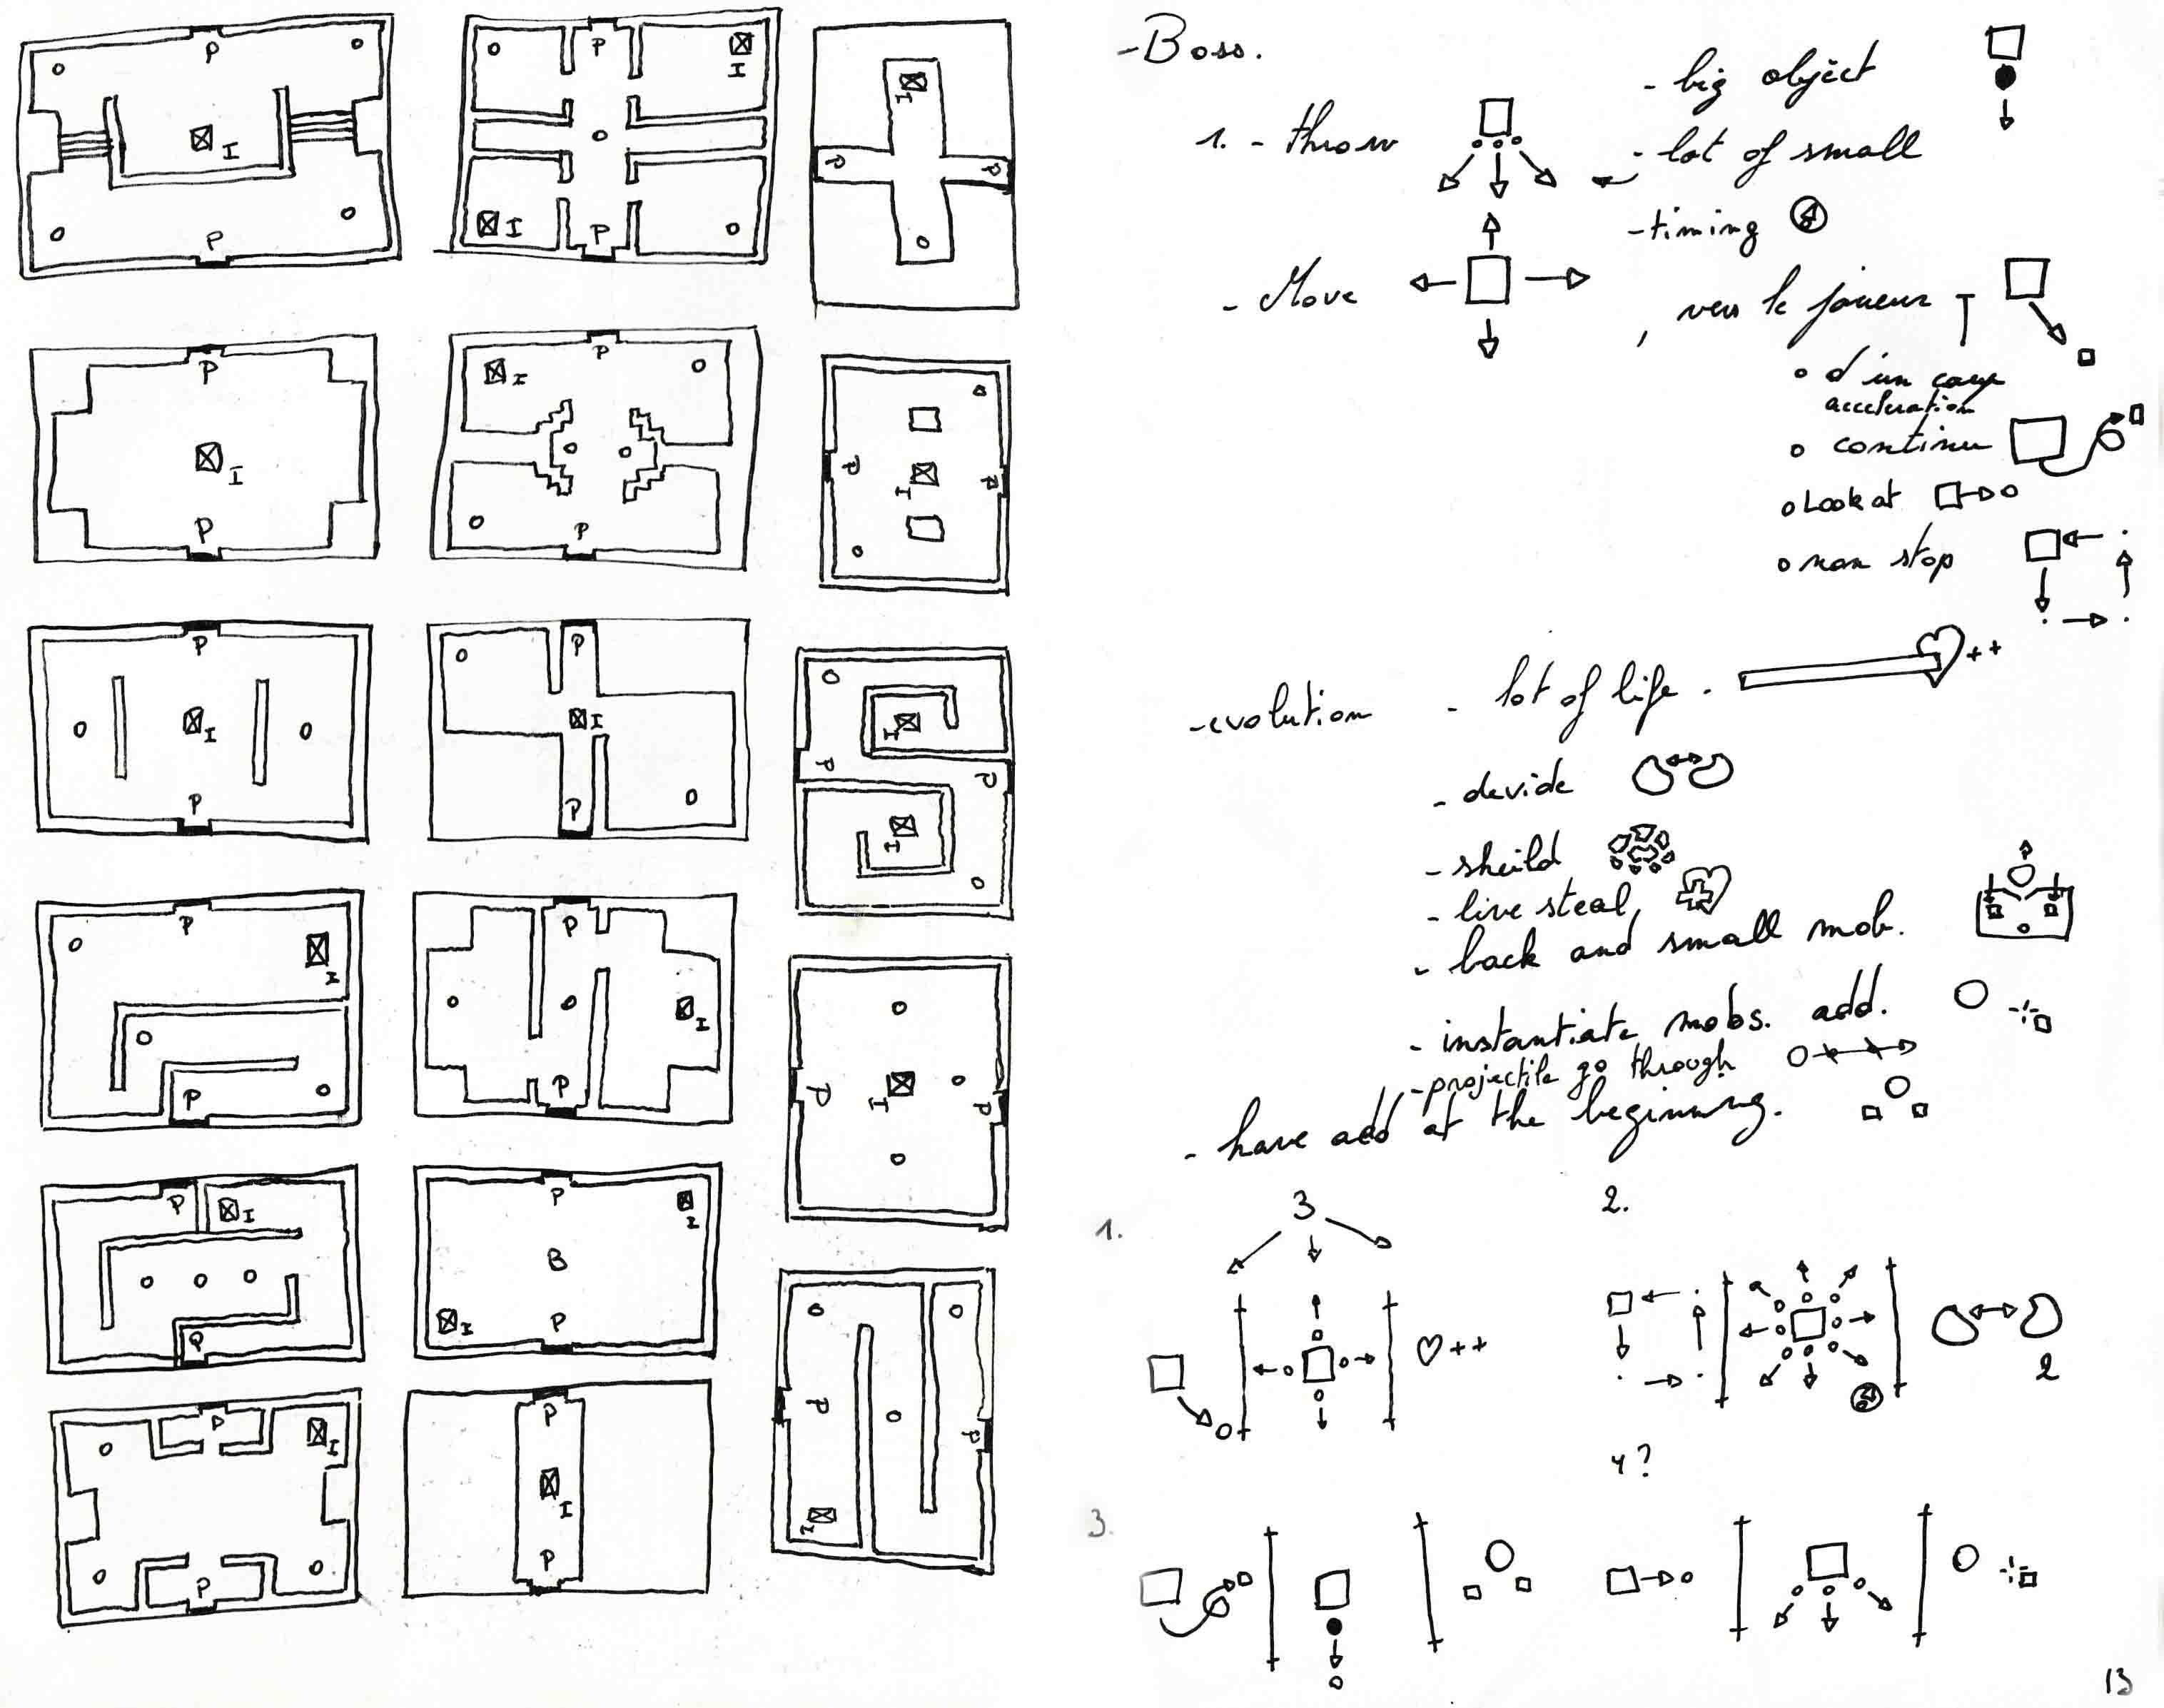 P
I
P
P
I
I
P
I
P
P
P
I
P
P
I
P
P
I
P
P
I
P
P
I
P
I
P
P
I
P
P
I
P
P
I
P
P
I
P
I
P
P
I
P
P
I
B
I
P
P
P
I
P
I
P
P
I
P
- Boss.
1. - throw
- big object
- lot of small
- timing
- Move
, vers le joueur
o d'un coup
acceleration
o continu
o Look at
o non stop
- evolution
- lot of life.
++
- devide
- sheild
- live steal
- back and small mob.
- instantiate mobs. add.
- projectile go through
- have add at the beginning.
3
1.
2.
++
2
4?
3.
13